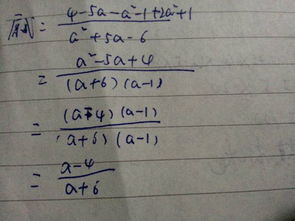 原式= 4-5a-a²-1+2a²+1 / a²+5a-6
= a²-5a+4 / (a+6)(a-1)
= (a-4)(a-1) / (a+6)(a-1)
= a-4 / a+6